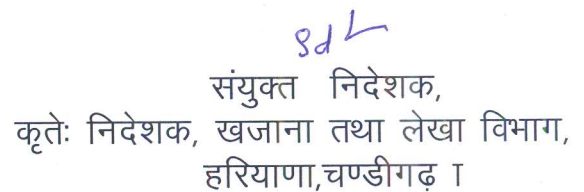 Sd/-
संयुक्त निदेशक,
कृतेः निदेशक, खजाना तथा लेखा विभाग,
हरियाणा,चण्डीगढ़ ा